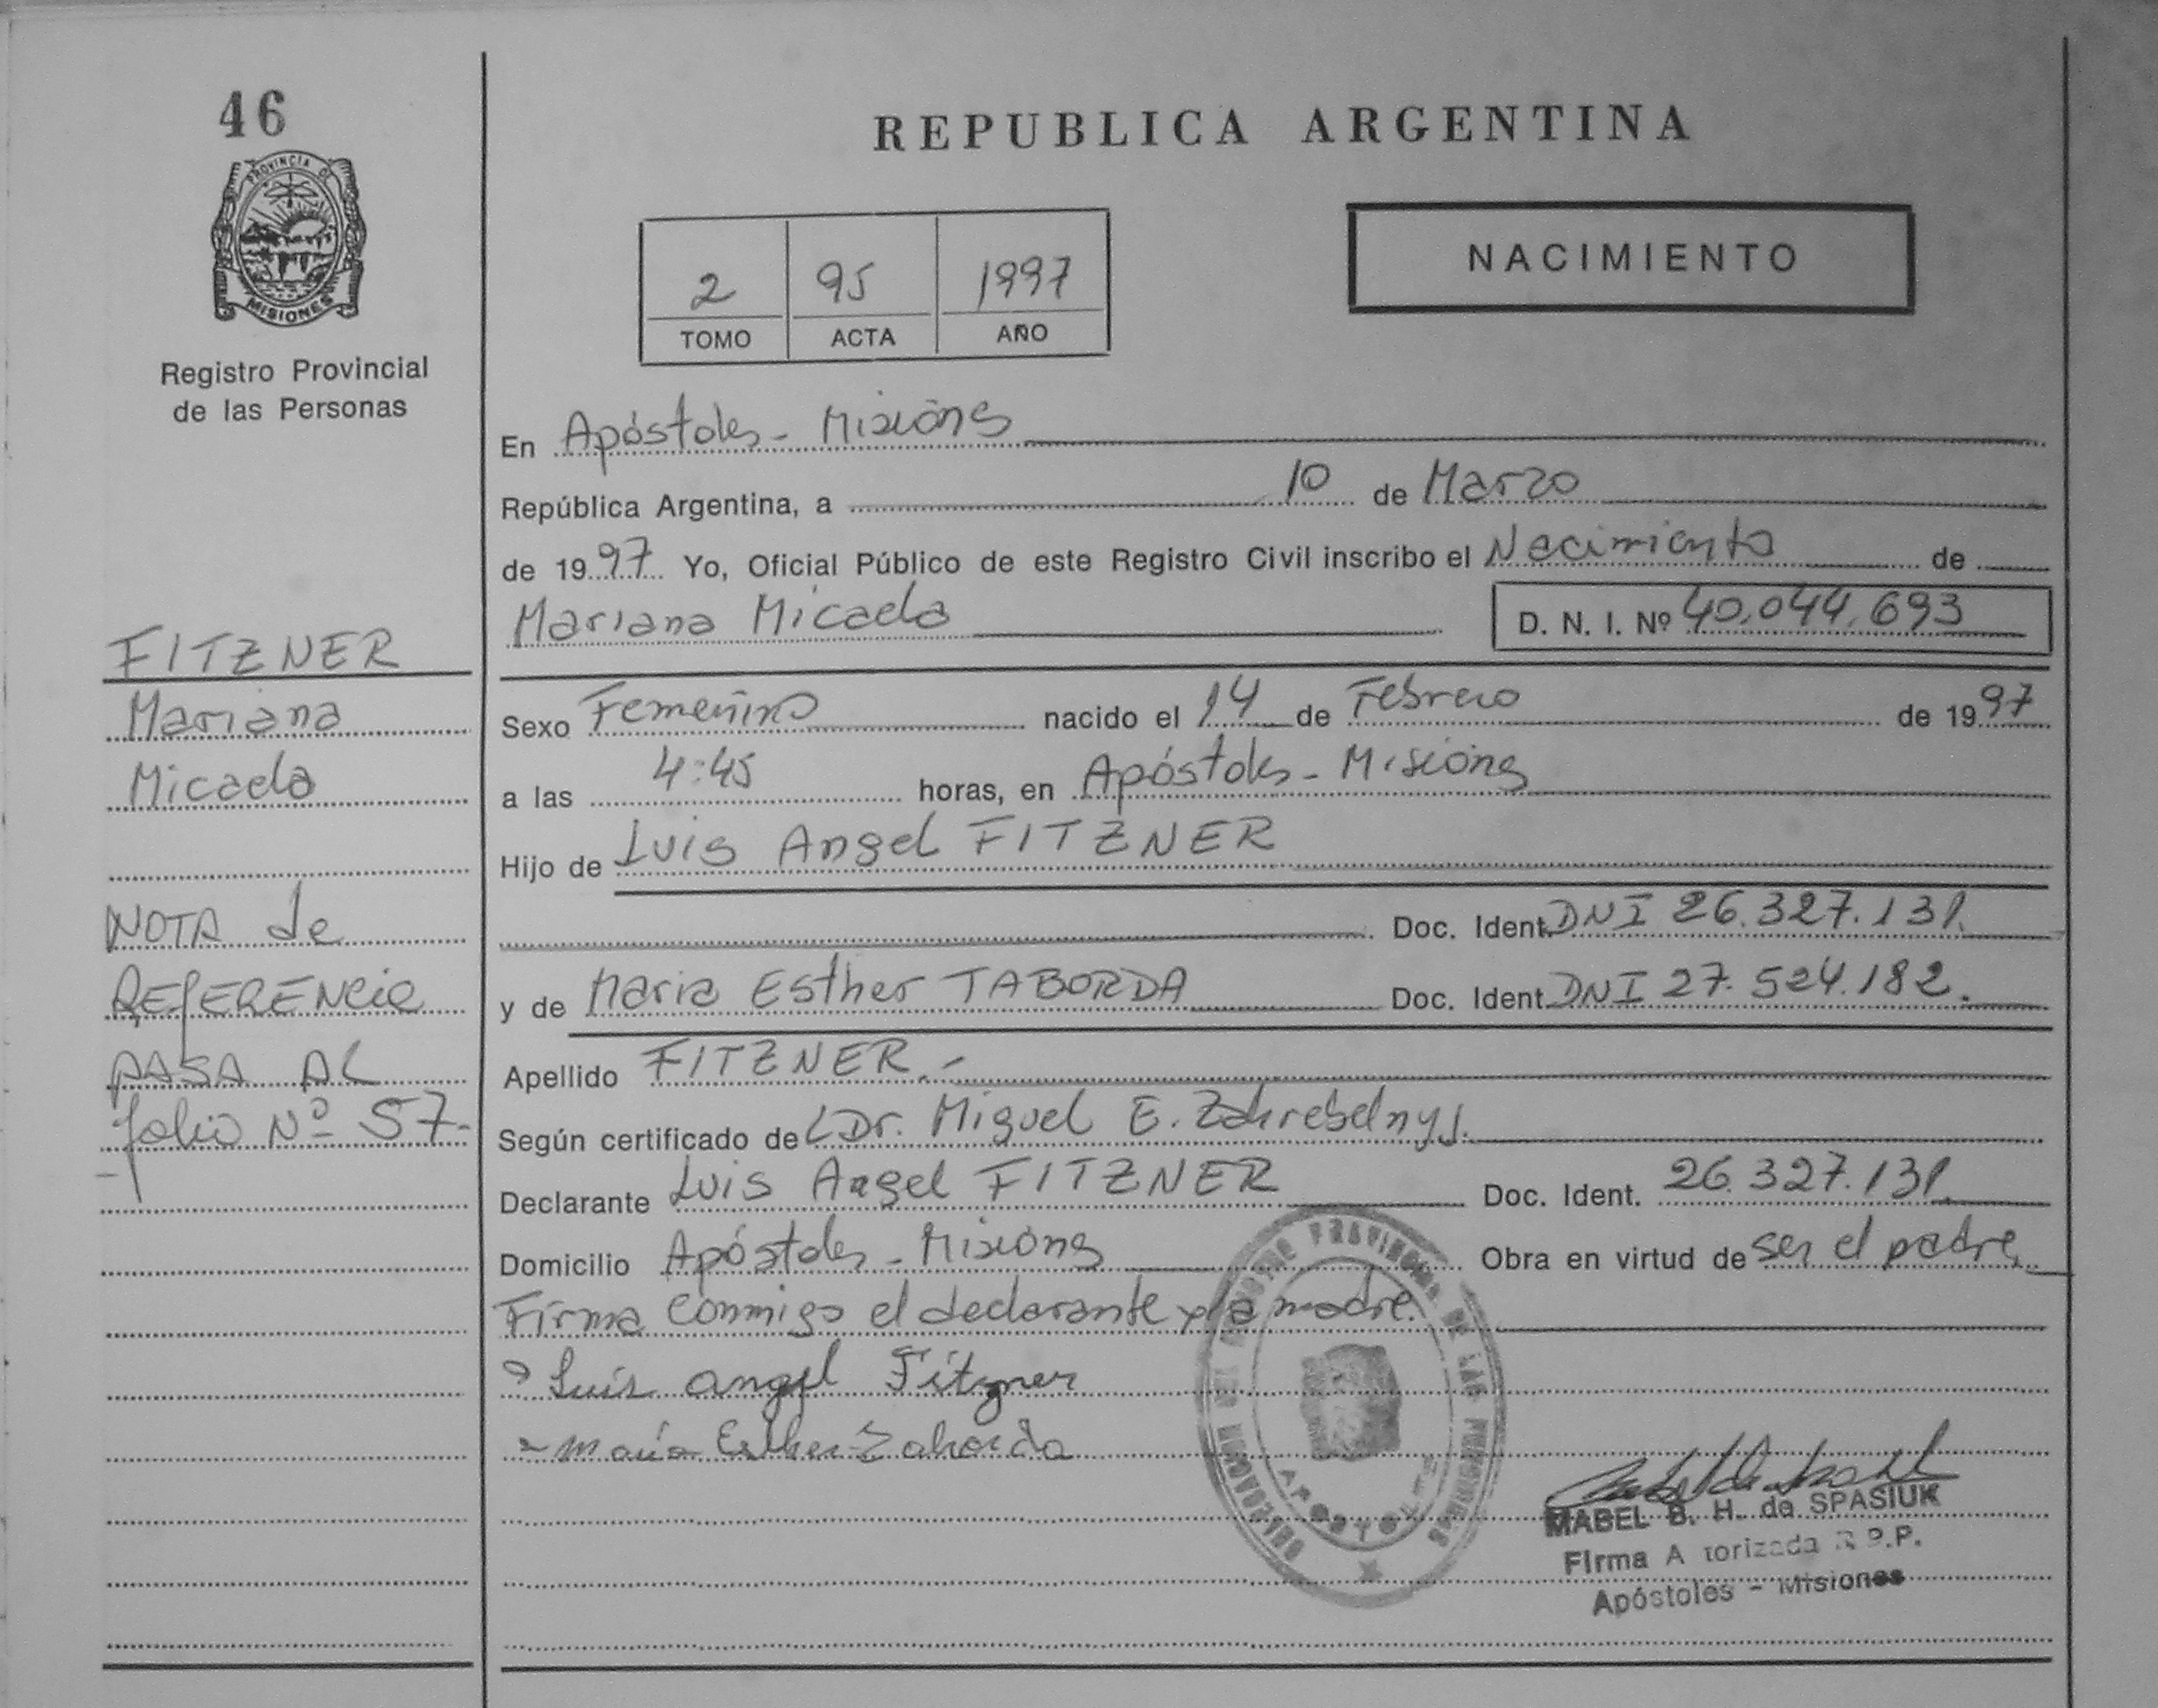 46
PROVINCIA DE
MISIONES
Registro Provincial
de las Personas
REPUBLICA ARGENTINA
NACIMIENTO
2 95 1997
TOMO ACTA AÑO
En Apóstoles - Misiones
República Argentina, a 10 de Marzo
de 1997 Yo, Oficial Público de este Registro Civil inscribo el Nacimiento de
Mariana Micaela D. N. I. Nº 40.044.693
Sexo Femenino nacido el 14 de Febrero de 1997
a las 4:45 horas, en Apóstoles - Misiones
Hijo de Luis Angel FITZNER
Doc. Ident. DNI 26.327.131.
y de Maria Esther TABORDA Doc. Ident. DNI 27.524.182.
Apellido FITZNER.-
Según certificado de (Dr. Miguel E. Zahrebelny).
Declarante Luis Angel FITZNER Doc. Ident. 26.327.131.
Domicilio Apóstoles - Misiones Obra en virtud de ser el padre,
Firma conmigo el declarante y la madre.
Luis angel Fitzner
Maria Esther Taborda
REGISTRO PROVINCIAL DE LAS PERSONAS
APOSTOLES
MABEL B. H. de SPASIUK
Firma A torizada R.P.P.
Apóstoles - Misiones
FITZNER
Mariana
Micaela
NOTA de
REFERENCIA
PASA AL
folio Nº 57-